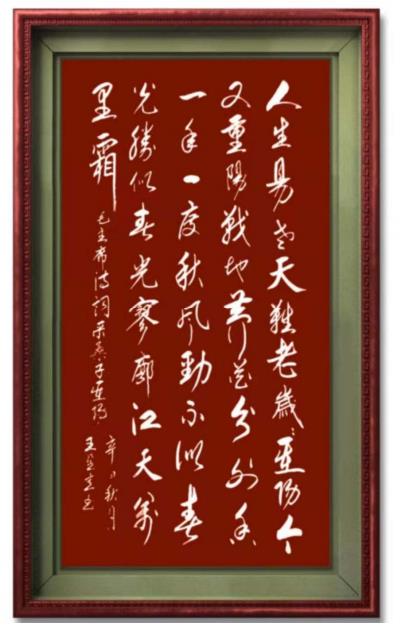 人生易老天難老歲々重陽今
又重陽戰地黄花分外香
一年一度秋风勁不似春
光勝似春光寥廓江天萬
里霜
毛主席诗词采桑子重陽
辛丑秋月
王